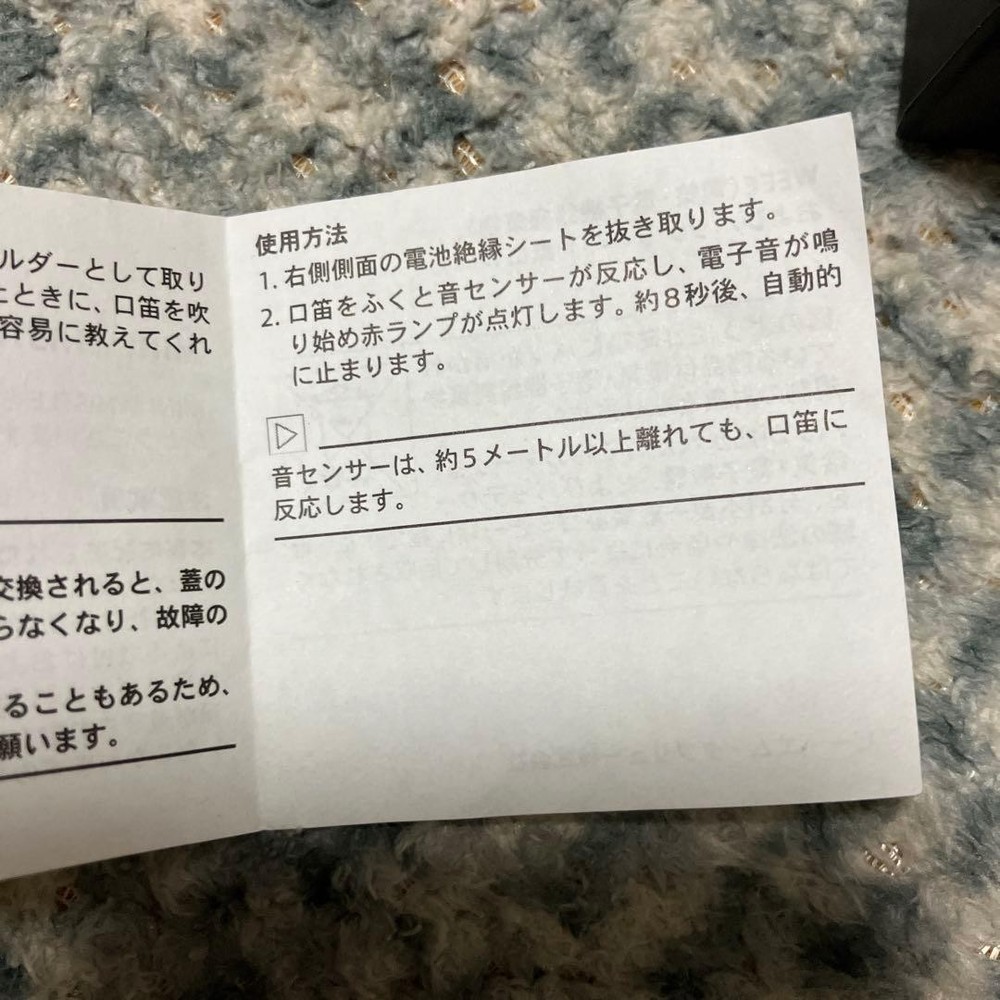 ルダーとして取り
ときに、口笛を吹
容易に教えてくれ
交換されると、蓋の
らなくなり、故障の
ることもあるため、
願います。
使用方法
1. 右側側面の電池絶縁シートを抜き取ります。
2. 口笛をふくと音センサーが反応し、電子音が鳴
り始め赤ランプが点灯します。約8秒後、自動的
に止まります。
音センサーは、約5メートル以上離れても、口笛に
反応します。